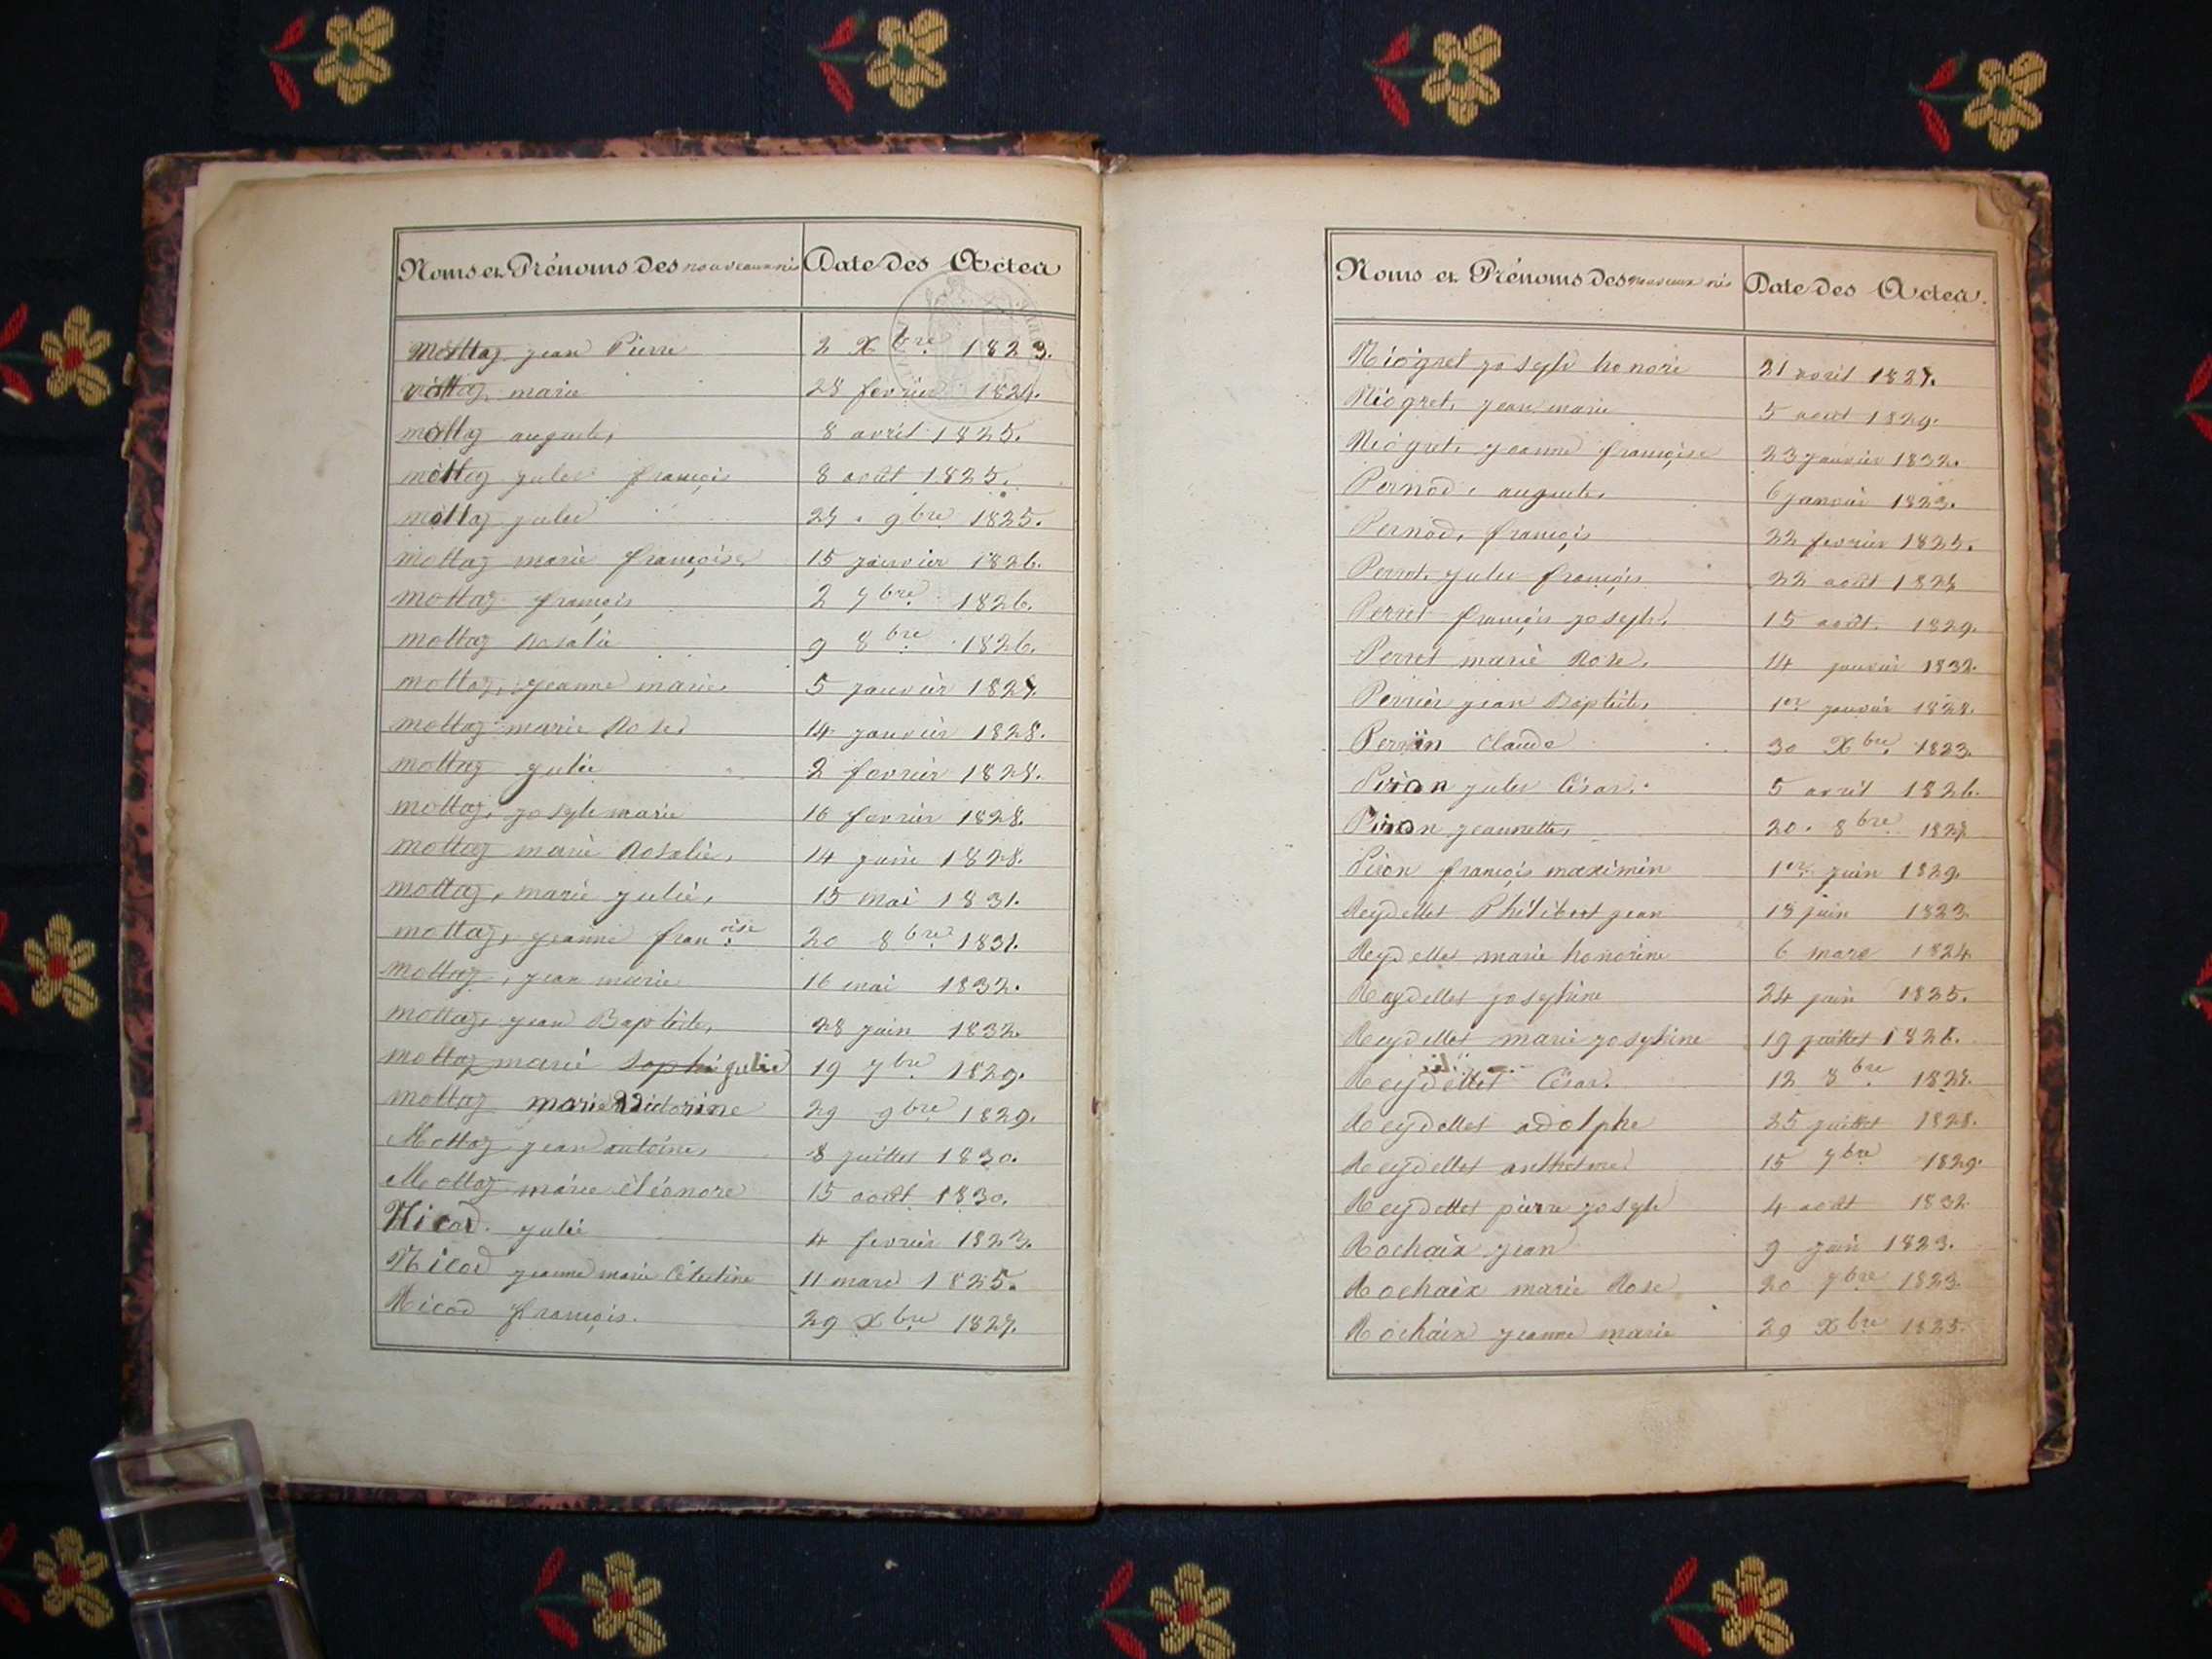 Noms et Prénoms des nouveaux nés Date des Actes
Mottaz jean Pierre 2 Xbre 1823.
mottaz, marie 28 fevrier 1824.
mottaz auguste, 8 avril 1825.
mottaz jules françois 8 août 1825.
mottaz julie 9bre 1825.
mottaz marie françoise 15 janvier 1826.
mottaz françois 2 7bre 1826.
mottaz Rosalie 9 8bre 1826.
mottaz, jeanne marie 5 janvier 1827.
mottaz marie Rose. 14 janvier 1828.
mottaz julie 2 fevrier 1828.
mottaz, joseph marie 16 fevrier 1828.
mottaz marie Rosalie, 14 juin 1828.
mottaz, marie julie, 15 mai 1831.
mottaz, jeanne fran.oise 20 8bre 1831.
mottaz, jean marie 16 mai 1832.
mottaz, jean Baptiste, 28 juin 1832.
mottaz marie Sophie julie 19 7bre 1829.
mottaz marie Victorine 29 9bre 1829.
Mottaz jean antoine, 8 juillet 1830.
Mottaz marie éléonore 15 août 1830.
Nicod. julie 4 fevrier 1823.
Nicod jeanne marie Célestine 11 mars 1825.
Nicod françois. 29 Xbre 1827.
Noms et Prénoms des nouveaux nés Date des Actes.
Niogret joseph honoré 21 avril 1827.
Niogret, jean marie 5 août 1829.
Niogret, jeanne françoise 23 janvier 1832.
Pernod, auguste, 6 janvier 1823.
Pernod, françois 22 fevrier 1825.
Perret, jules françois 22 août 1827
Perret françois joseph, 15 août. 1829.
Perret marie Rose, 14 janvier 1832.
Perrier jean Baptiste, 1er janvier 1828.
Perrin Claude 30 Xbre 1823.
Piron jules César. 5 avril 1826.
Piron jeannette, 20. 8bre 1827
Piron françois maximin 1er juin 1829.
Reydellet Philibert jean 18 juin 1823
Reydellet marie honorine 6 mars 1824
Reydellet josephine 24 juin 1825.
Reydellet marie josephine 19 juillet 1826.
Reydellet César. 12 8bre 1827.
Reydellet adolphe 25 juillet 1828.
Reydellet anthelme 15 7bre 1829.
Reydellet pierre joseph 4 août 1832
Rochaix jean 9 juin 1823.
Rochaix marie Rose 20 7bre 1823.
Rochaix jeanne marie 29 Xbre 1825.